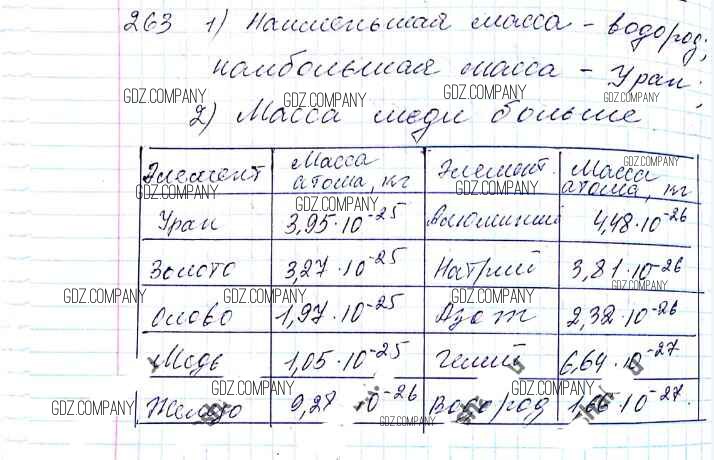 263 1) Наименьшая масса - водород;
наибольшая масса - Уран.
GDZ.COMPANY GDZ.COMPANY GDZ.COMPANY GDZ.COMPANY
2) Масса меди больше
Элемент Масса атома, кг Элемент Масса атома, кг
GDZ.COMPANY GDZ.COMPANY GDZ.COMPANY GDZ.COMPANY
Уран 3,95·10⁻²⁵ Алюминий 4,48·10⁻²⁶
Золото 3,27·10⁻²⁵ Натрий 3,81·10⁻²⁶
GDZ.COMPANY GDZ.COMPANY GDZ.COMPANY GDZ.COMPANY
Олово 1,97·10⁻²⁵ Азот 2,32·10⁻²⁶
Медь 1,05·10⁻²⁵ Гелий 6,64·10⁻²⁷
GDZ.COMPANY GDZ.COMPANY GDZ.COMPANY GDZ.COMPANY
Железо 9,27·10⁻²⁶ Водород 1,66·10⁻²⁷
GDZ.COMPANY